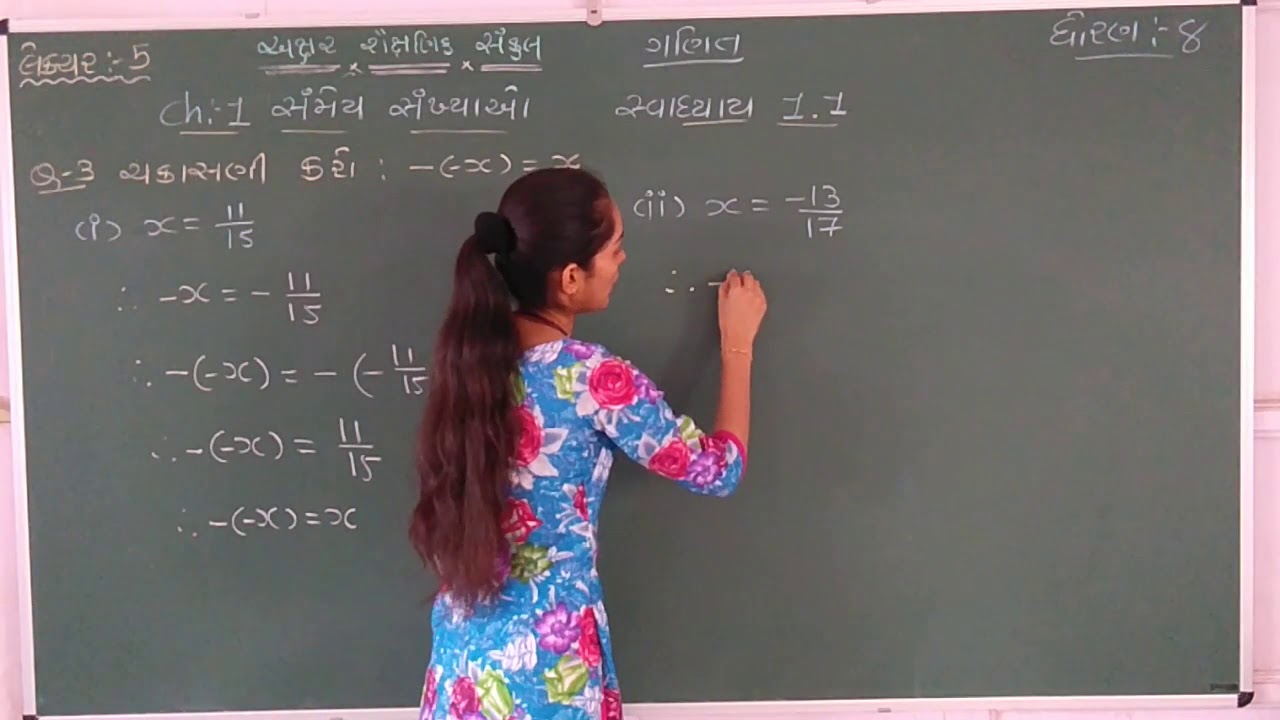 લેક્ચર :- 5 અક્ષર × શૈક્ષણિક × સંકુલ ગણિત ધોરણ :- 8
Ch:-1 સંમેય સંખ્યાઓ સ્વાધ્યાય 1.1
Q-3 ચકાસણી કરો : -(-x) = x
(i) x = 11/15
∴ -x = - 11/15
∴ -(-x) = - (- 11/15
∴ -(-x) = 11/15
∴ -(-x) = x
(ii) x = -13/17
∴ -